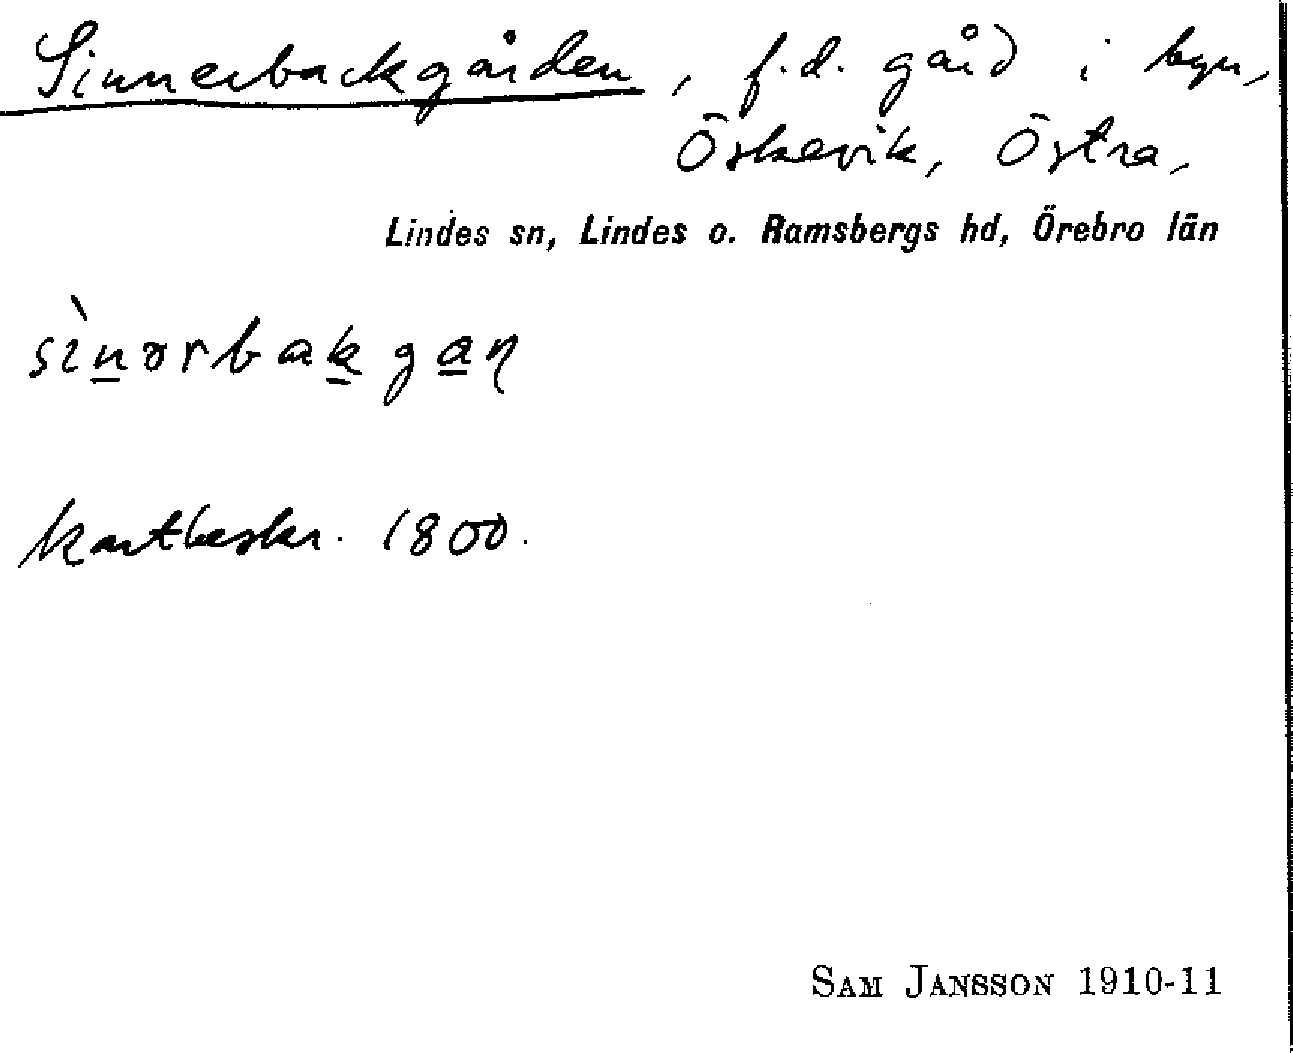 Sinnerbackgården, f.d. gård i byn,
Öskevik, Östra,
Lindes sn, Lindes o. Ramsbergs hd, Örebro län
sìnərbakgaɳ
kartbeskr. 1800.
SAM JANSSON 1910-11